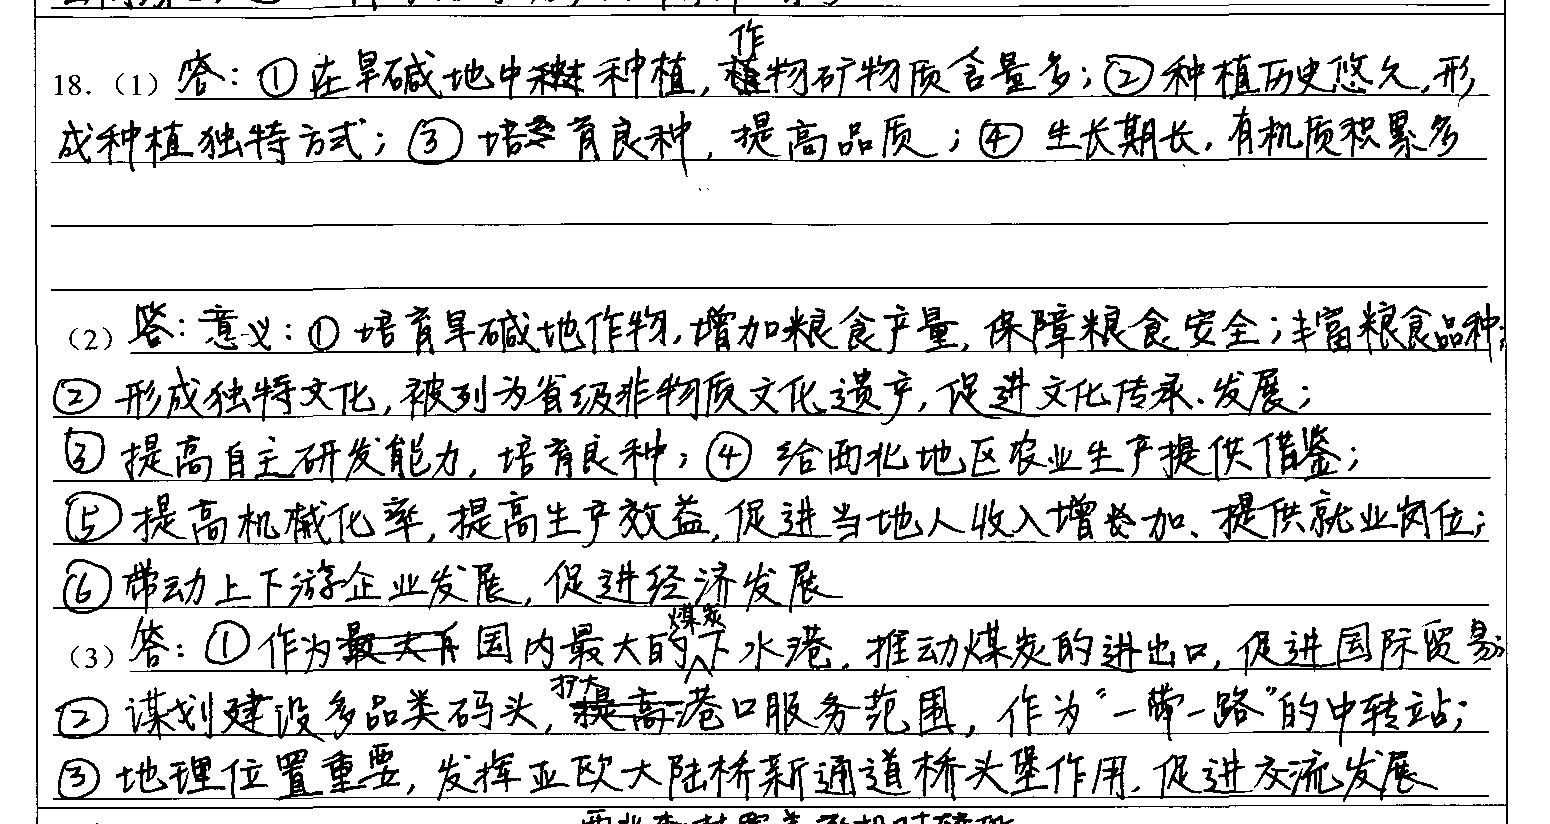 18.（1）答：①在旱碱地中种植，作物矿物质含量多；②种植历史悠久，形
成种植独特方式；③培育良种，提高品质；④生长期长，有机质积累多
（2）答：意义：①培育旱碱地作物，增加粮食产量，保障粮食安全；丰富粮食品种；
②形成独特文化，被列为省级非物质文化遗产，促进文化传承、发展；
③提高自主研发能力，培育良种；④给西北地区农业生产提供借鉴；
⑤提高机械化率，提高生产效益，促进当地人收入增加、提供就业岗位；
⑥带动上下游企业发展，促进经济发展
（3）答：①作为国内最大的煤炭下水港，推动煤炭的进出口，促进国际贸易；
②谋划建设多品类码头，扩大港口服务范围，作为“一带一路”的中转站；
③地理位置重要，发挥亚欧大陆桥新通道桥头堡作用，促进交流发展